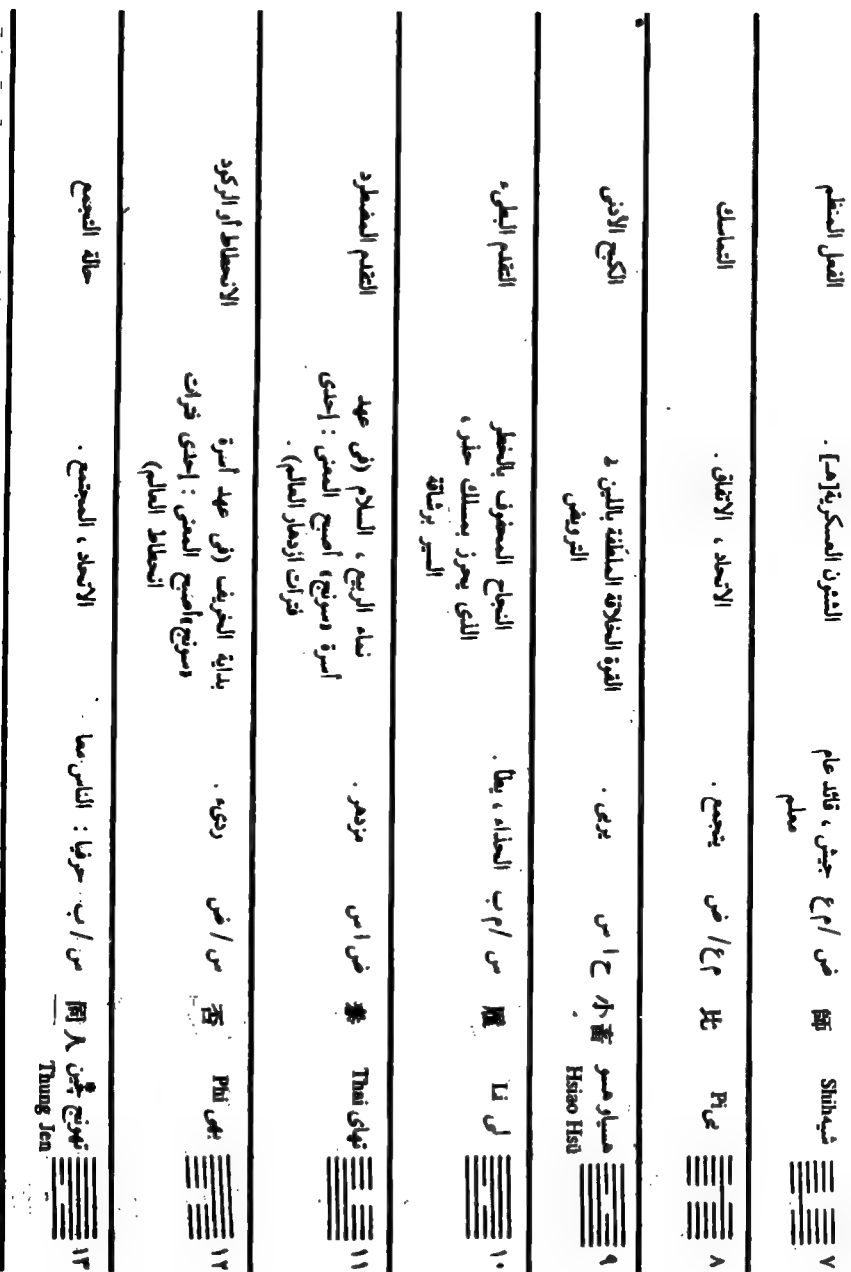 ٧ شيه Shih 師 ض / م ع جيش ، قائد عام معلم الشئون العسكرية [هـ] . الفعل المنظم
٨ پى Pi 比 م ع / ض يتجمع . الاتحاد ، الاتفاق . التماسك
٩ هسياو هسو Hsiao Hsü 小畜 ح / س يربى . القوة الخلاقة الملطفة باللين الترويض الكبح الأدنى
١٠ لى Li 履 س / م ب الحذاء ، يطأ . النجاح المحفوف بالخطر الذى يحرز بمسلك حذر ، السير برشاقة التقدم البطىء
١١ تهاى Thai 泰 ض / س مزدهر . نماء الربيع ، السلام (فى عهد أسرة «سونج» أصبح المعنى : إحدى فترات ازدهار العالم) . التقدم المضطرد
١٢ پهى Phi 否 س / ض ردىء . بداية الخريف (فى عهد أسرة «سونج» أصبح المعنى : إحدى فترات انحطاط العالم) الانحطاط أو الركود
١٣ تهونج چين Thung Jen 同人 س / ب حرفيا : الناس معا . الاتحاد ، المجتمع . حالة التجمع